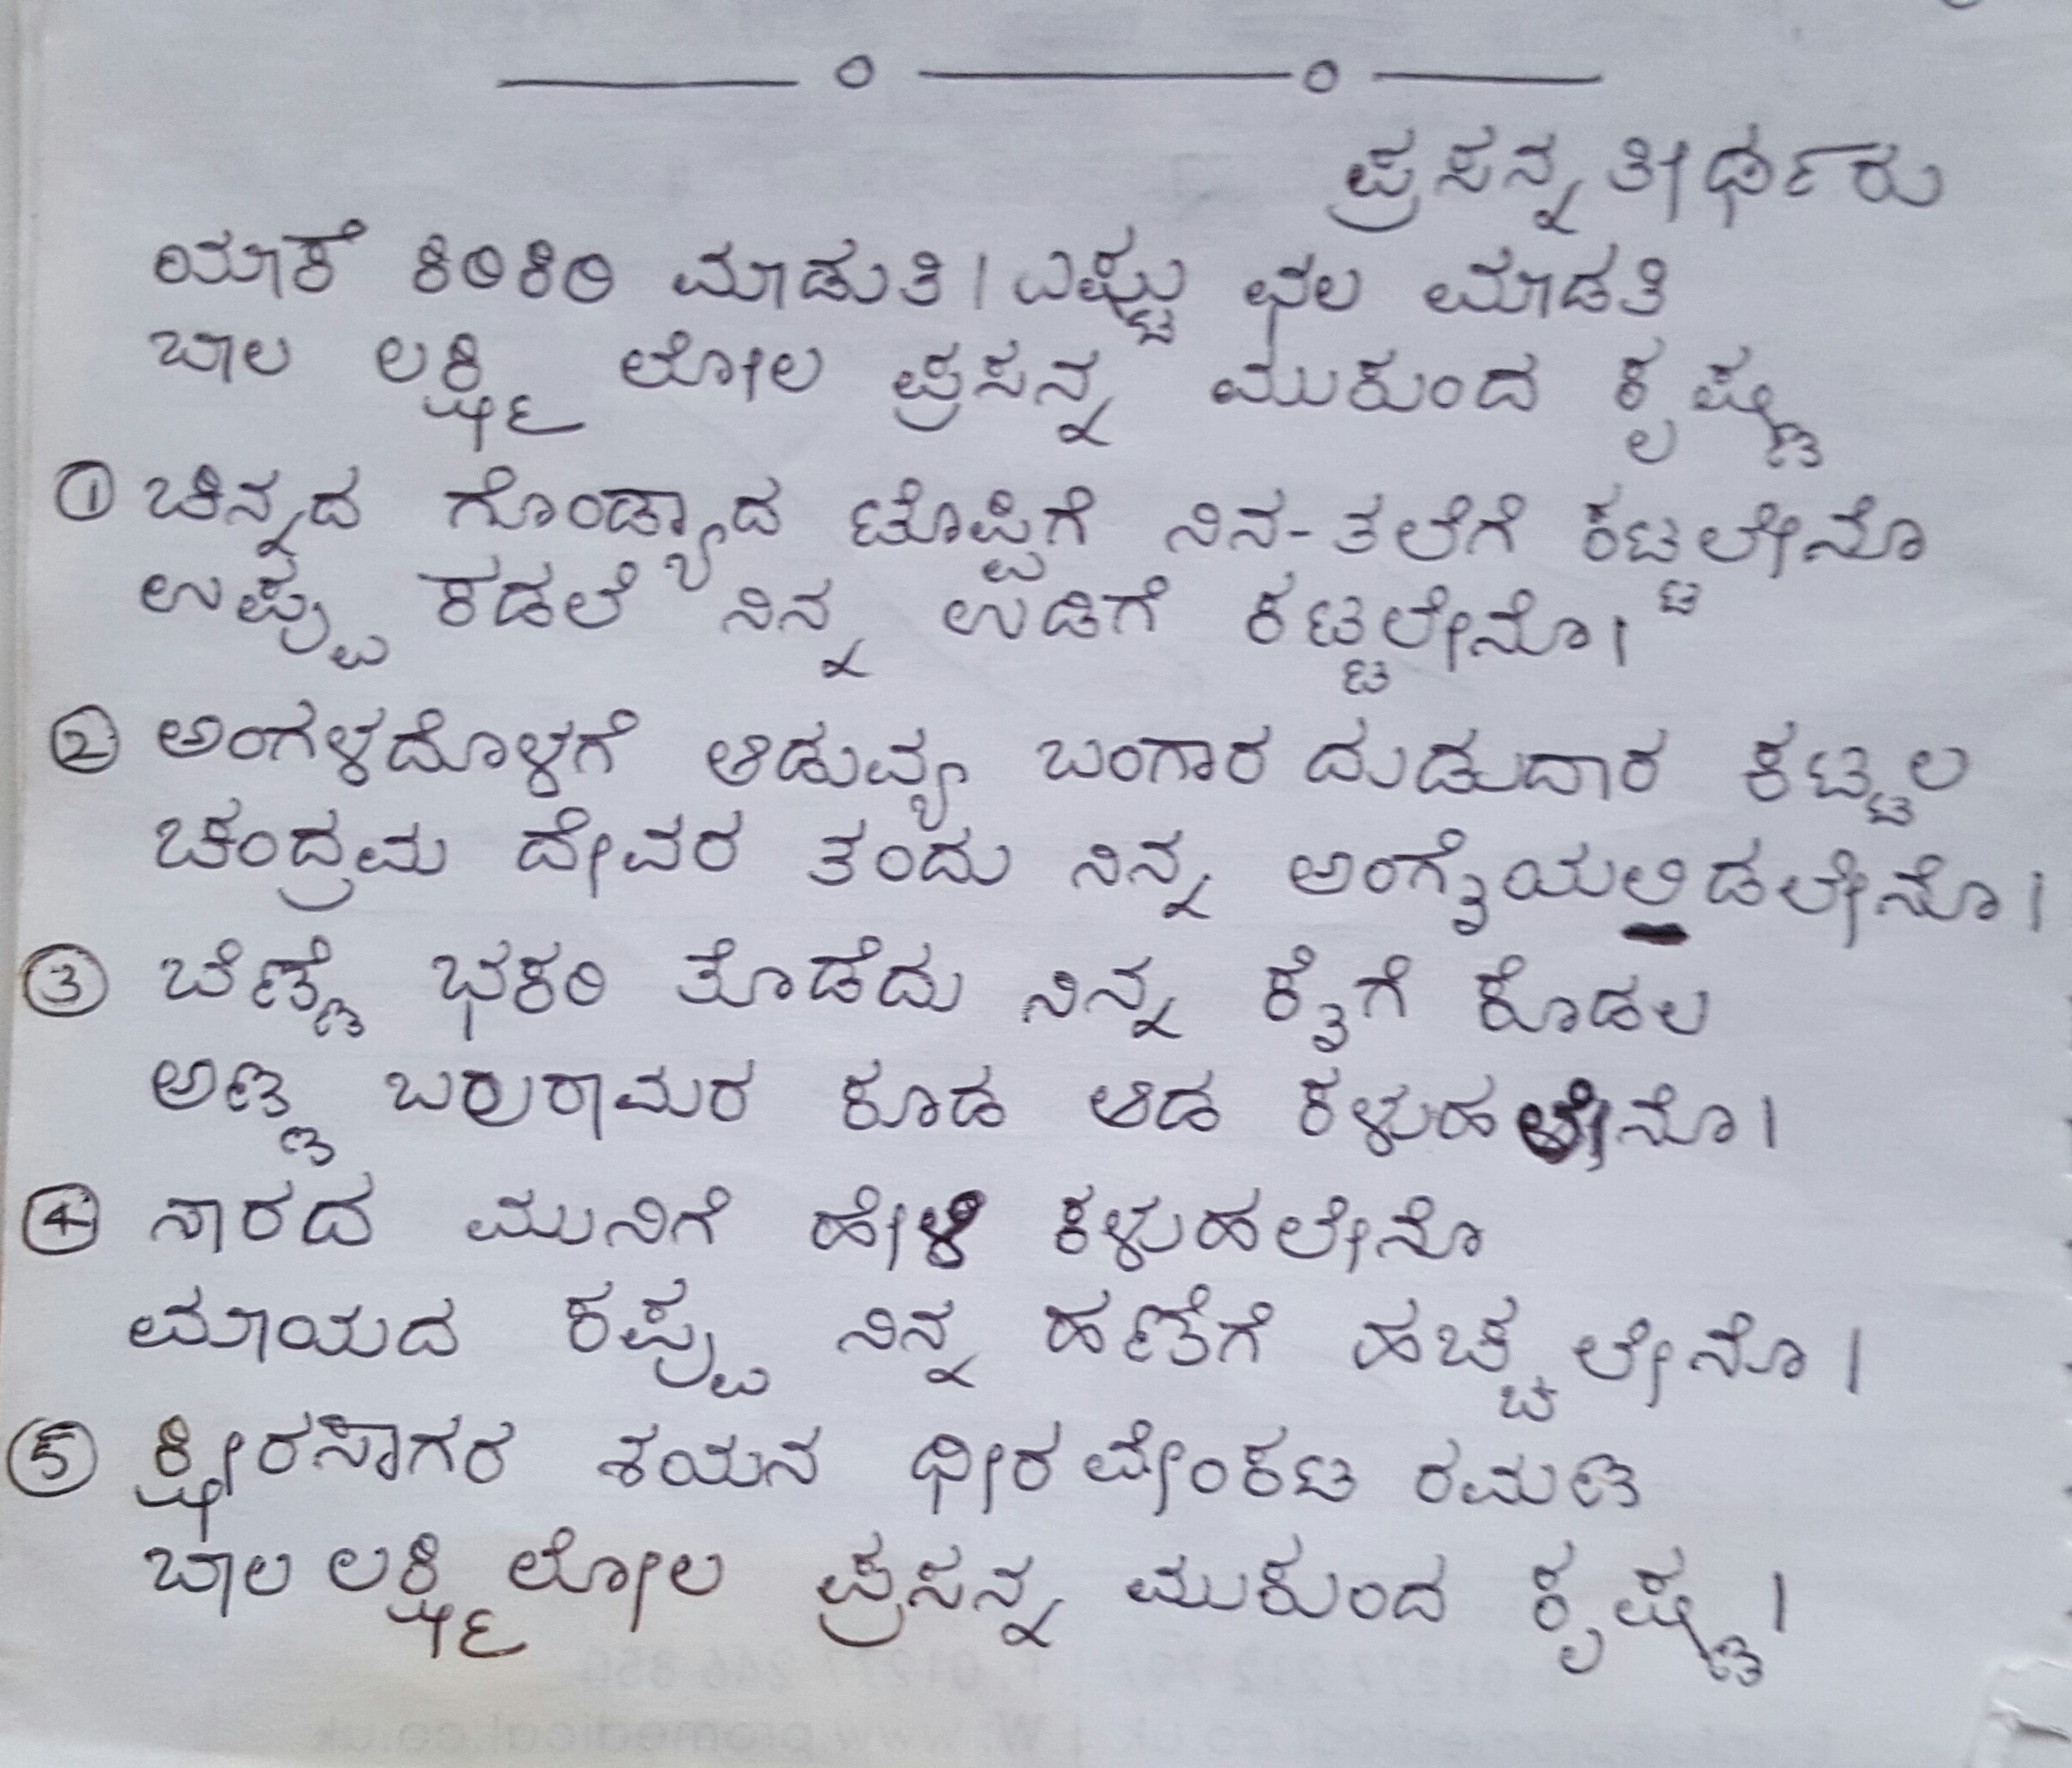 ಪ್ರಸನ್ನ ತೀರ್ಥರು
ಯಾಕೆ ಕಿರಿಕಿರಿ ಮಾಡುತಿ । ಎಷ್ಟು ಛಲ ಮಾಡತಿ
ಬಾಲ ಲಕ್ಷ್ಮಿ ಲೋಲ ಪ್ರಸನ್ನ ಮುಕುಂದ ಕೃಷ್ಣ
① ಚಿನ್ನದ ಗೊಂಡ್ಯಾದ ಟೊಪ್ಪಿಗೆ ನಿನ-ತಲೆಗೆ ಕಟ್ಟಲೇನೊ
ಉಪ್ಪು ಕಡಲೆ ನಿನ್ನ ಉಡಿಗೆ ಕಟ್ಟಲೇನೊ।
② ಅಂಗಳದೊಳಗೆ ಆಡುವ್ಯ ಬಂಗಾರ ದುಡುದಾರ ಕಟ್ಟಲ
ಚಂದ್ರಮ ದೇವರ ತಂದು ನಿನ್ನ ಅಂಗೈಯಲ್ಲಿಡಲೇನೊ।
③ ಬೆಣ್ಣೆ ಭಕರಿ ತೊಡೆದು ನಿನ್ನ ಕೈಗೆ ಕೊಡಲ
ಅಣ್ಣ ಬಲರಾಮರ ಕೂಡ ಆಡ ಕಳುಹಲೇನೊ।
④ ನಾರದ ಮುನಿಗೆ ಹೇಳಿ ಕಳುಹಲೇನೊ
ಮಾಯದ ಕಪ್ಪು ನಿನ್ನ ಹಣೆಗೆ ಹಚ್ಚಲೇನೊ।
⑤ ಕ್ಷೀರಸಾಗರ ಶಯನ ಧೀರ ವೇಂಕಟ ರಮಣ
ಬಾಲ ಲಕ್ಷ್ಮಿ ಲೋಲ ಪ್ರಸನ್ನ ಮುಕುಂದ ಕೃಷ್ಣ।